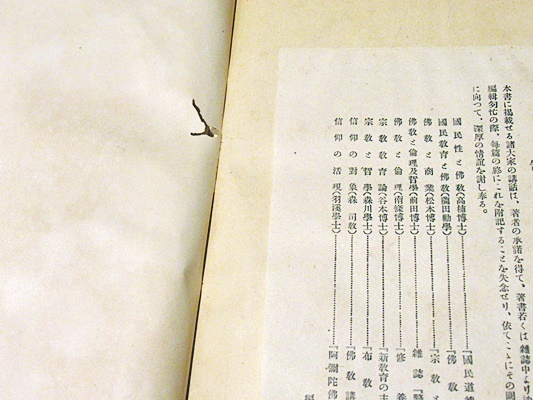 本書に掲載せる諸大家の講話は、著者の承諾を得て、著書若くは雜誌中より
編輯匆忙の際、毎篇の終にこれを附記することを失念せり、依てこゝにその
に向つて、深厚の情誼を謝し奉る。
國民性と佛敎(高楠博士)………『國民道
國民敎育と佛敎(薗田勳學)………『佛敎
佛敎と商業(松本博士)………『宗敎
佛敎と倫理及哲學(前田博士)………雜誌
佛敎と倫理(南條博士)………『修養
宗敎敎育論(谷本博士)………『新敎育の主
宗敎と哲學(森川學士)………『布敎
信仰の對象(森司敎)………『佛敎講
信仰の活現(羽溪學士)………『阿彌陀佛